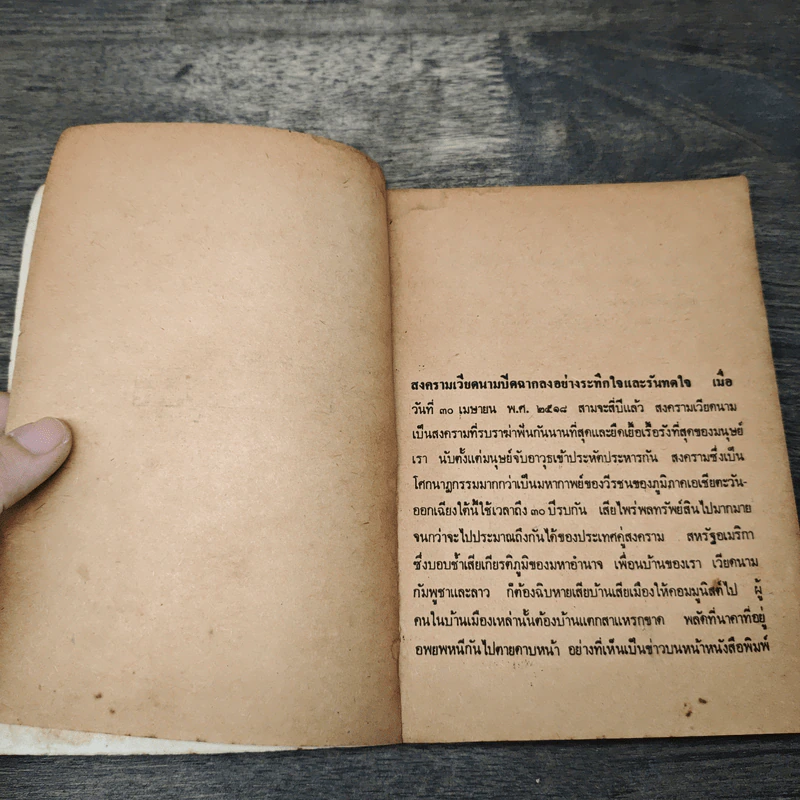 สงครามเวียดนามปิดฉากลงอย่างระทึกใจและรันทดใจ เมื่อ
วันที่ ๓๐ เมษายน พ.ศ. ๒๕๑๘ สามจะสี่ปีแล้ว สงครามเวียดนาม
เป็นสงครามที่รบราฆ่าฟันกันนานที่สุดและยืดเยื้อเรื้อรังที่สุดของมนุษย์
เรา นับตั้งแต่มนุษย์จับอาวุธเข้าประหัตประหารกัน สงครามซึ่งเป็น
โศกนาฏกรรมมากกว่าเป็นมหากาพย์ของวีรชนของภูมิภาคเอเชียตะวัน-
ออกเฉียงใต้นี้ใช้เวลาถึง ๓๐ ปีรบกัน เสียไพร่พลทรัพย์สินไปมากมาย
จนกว่าจะไปประมาณถึงกันได้ของประเทศคู่สงคราม สหรัฐอเมริกา
ซึ่งบอบช้ำเสียเกียรติภูมิของมหาอำนาจ เพื่อนบ้านของเรา เวียดนาม
กัมพูชาและลาว ก็ต้องฉิบหายเสียบ้านเสียเมืองให้คอมมูนิสต์ไป ผู้
คนในบ้านเมืองเหล่านั้นต้องบ้านแตกสาแหรกขาด พลัดที่นาคาที่อยู่
อพยพหนีกันไปตายดาบหน้า อย่างที่เห็นเป็นข่าวบนหน้าหนังสือพิมพ์